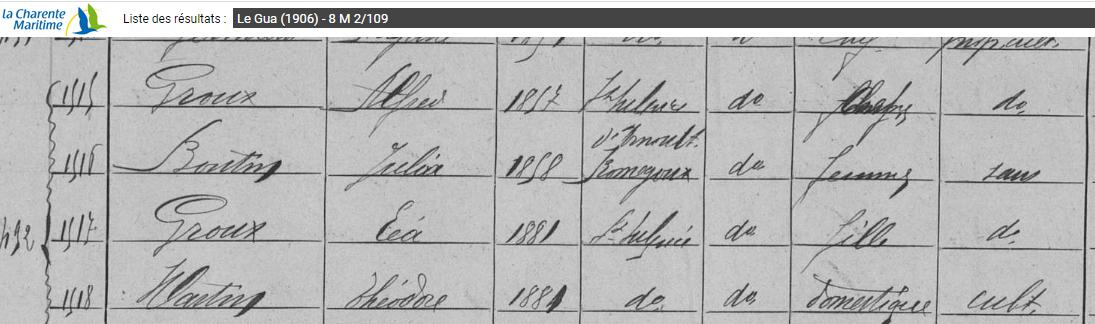 la Charente
Maritime
Liste des résultats : Le Gua (1906) - 8 M 2/109
1515 Groux Alfred 1857 do do
1516 Boutin Julia 1858 Romegoux do femme sans
492 1517 Groux Léa 1881 do fille do
1518 Martin Théodore 1881 do do domestique cult.